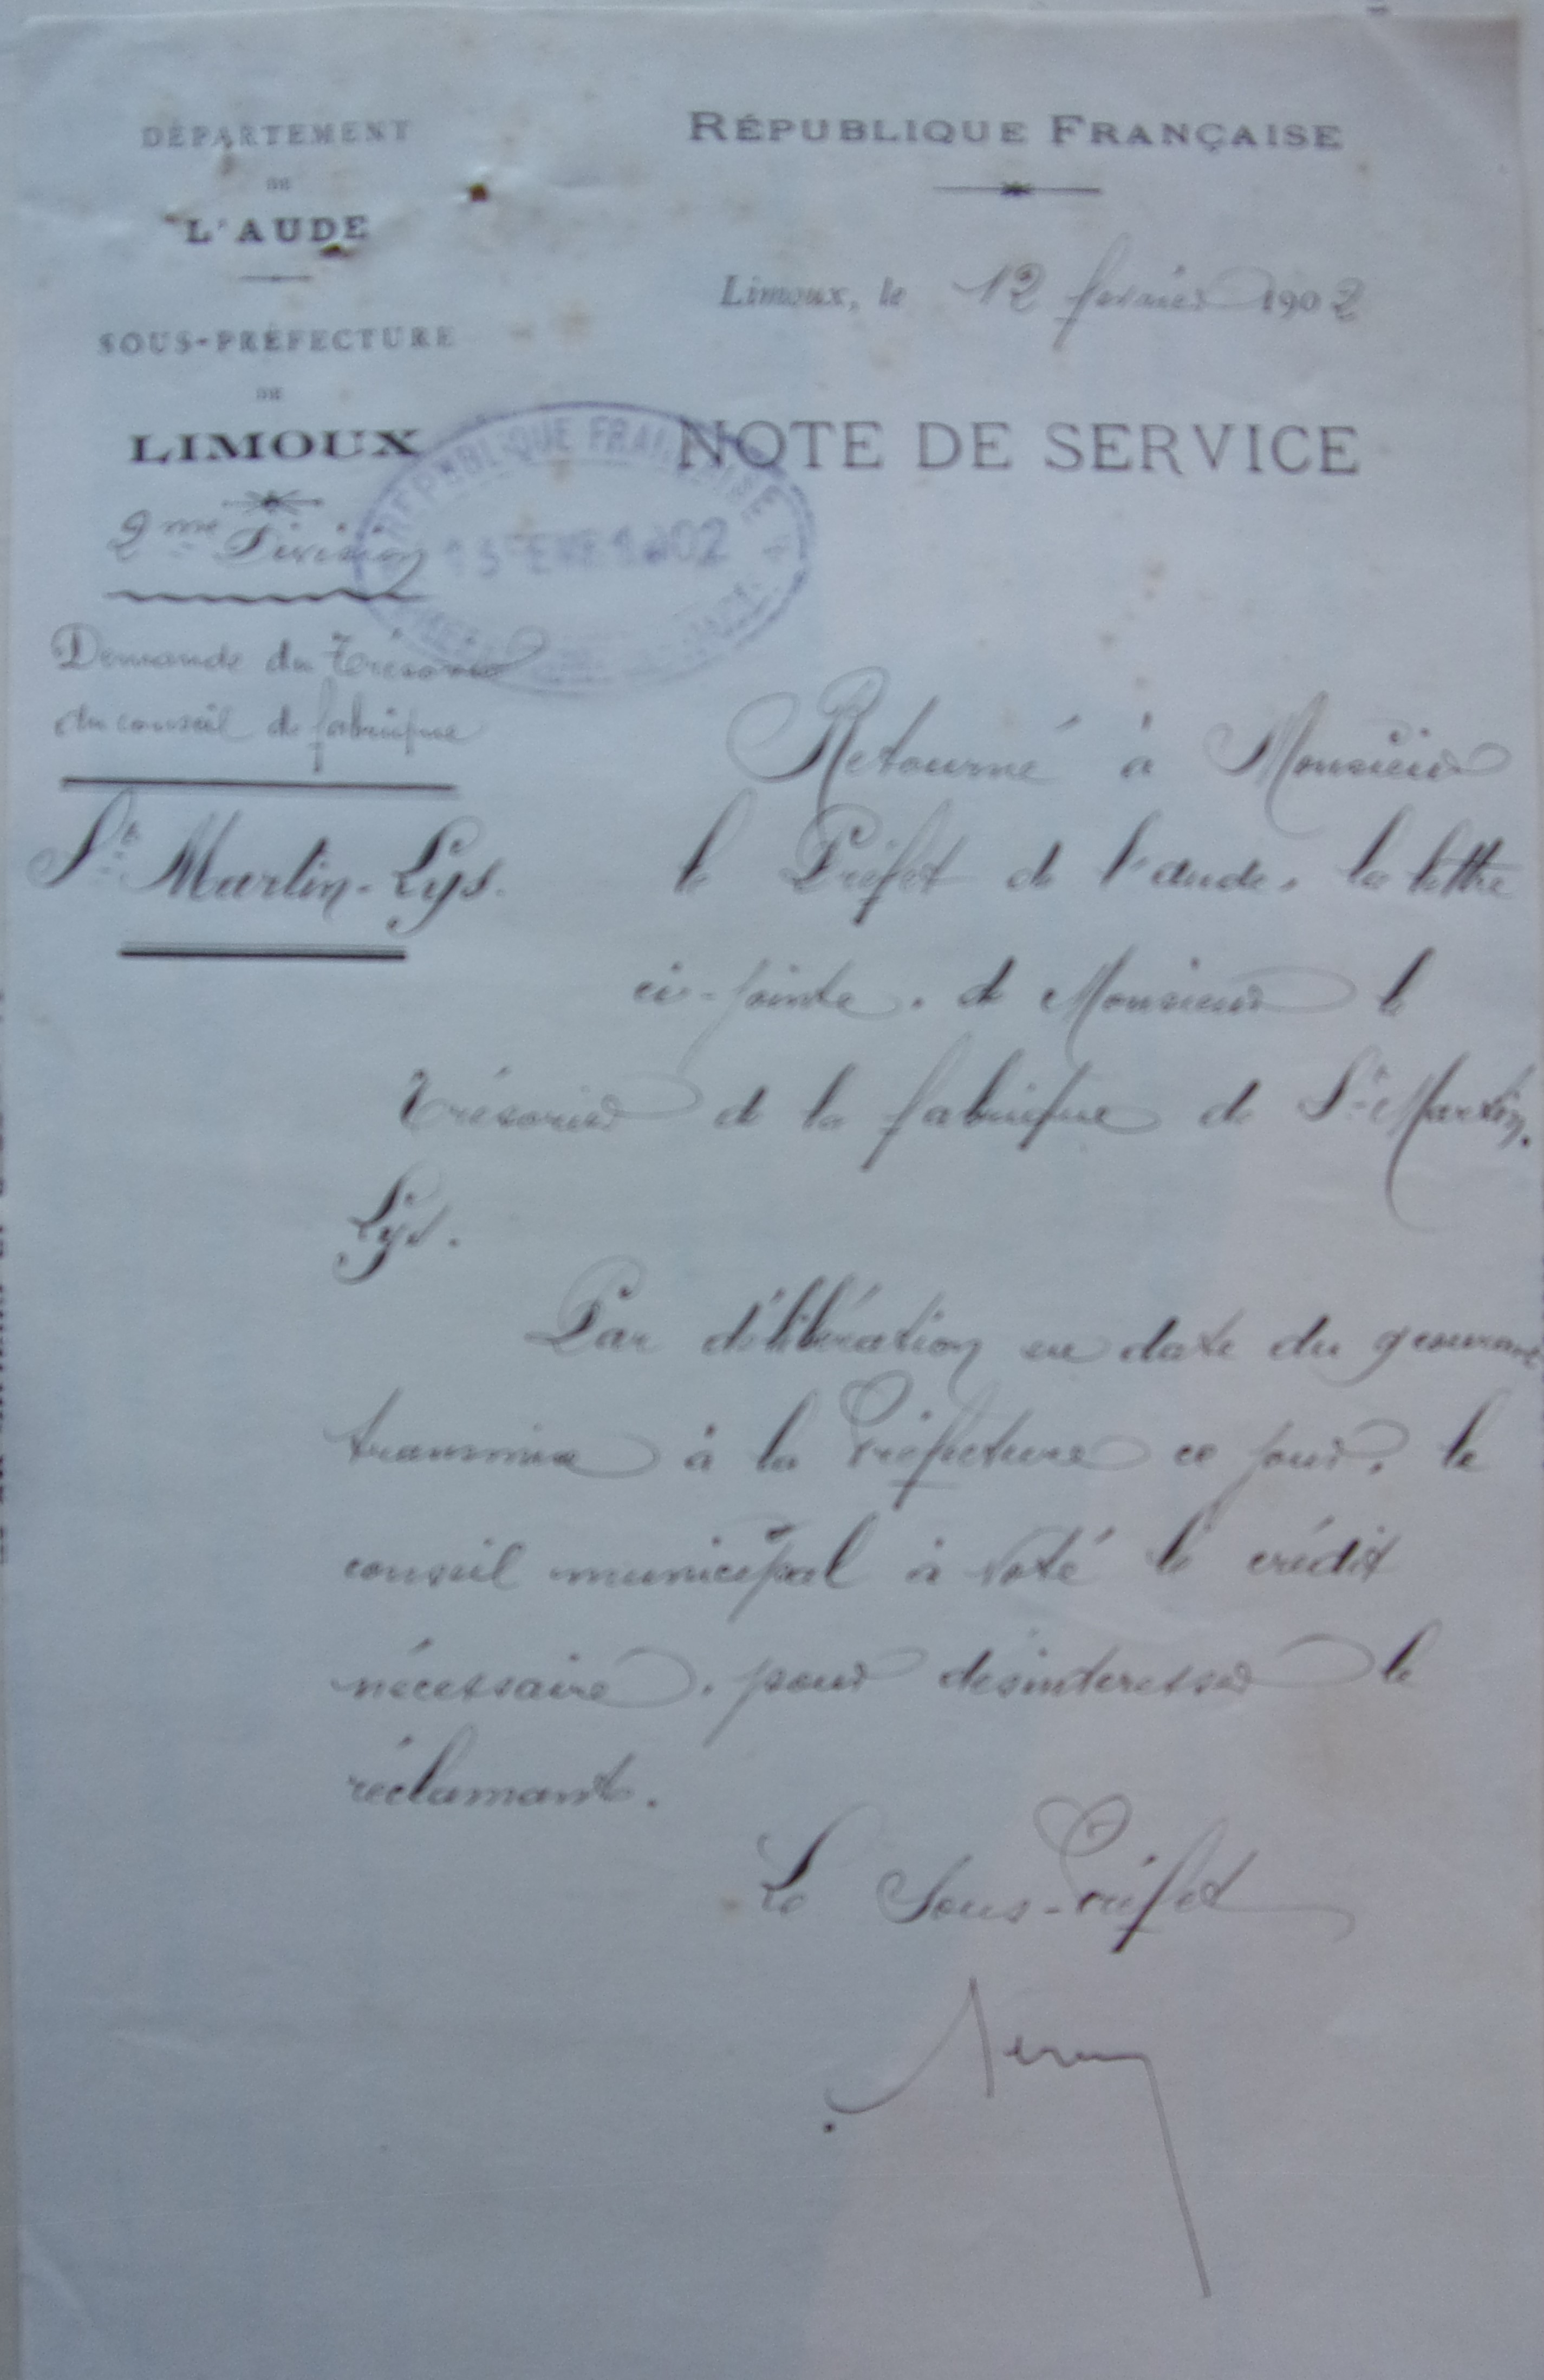 DÉPARTEMENT
DE
L'AUDE
SOUS-PRÉFECTURE
DE
LIMOUX
2me Division
Demande du Trésorier
du conseil de fabrique
St Martin-Lys.
RÉPUBLIQUE FRANÇAISE
Limoux, le 12 février 1902
NOTE DE SERVICE
RÉPUBLIQUE FRANÇAISE
1902
Retourné à Monsieur
le Préfet de l'aude, la lettre
ci-jointe, de Monsieur le
Trésorier de la fabrique de St Martin.
Lys.
Par délibération en date du 9 courant
transmise à la Préfecture ce jour, le
conseil municipal à voté le crédit
nécessaire, pour désinteresser le
réclamant.
Le Sous-Préfet